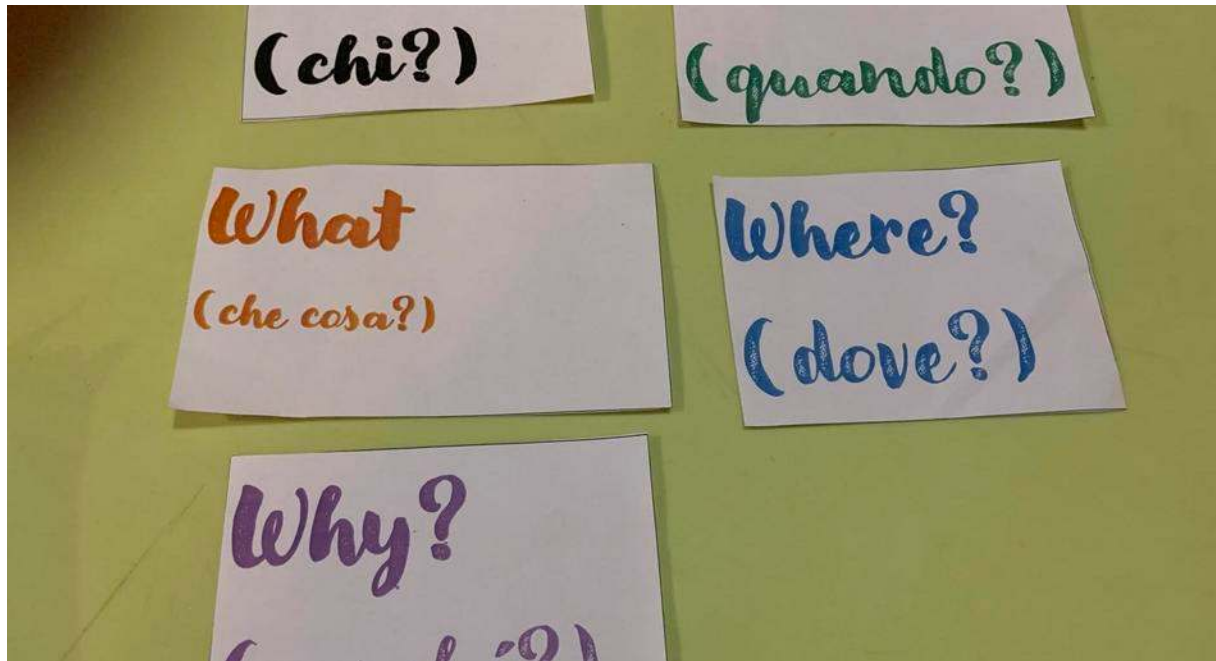 (chi?)
(quando?)
What
(che cosa?)
Where?
(dove?)
Why?